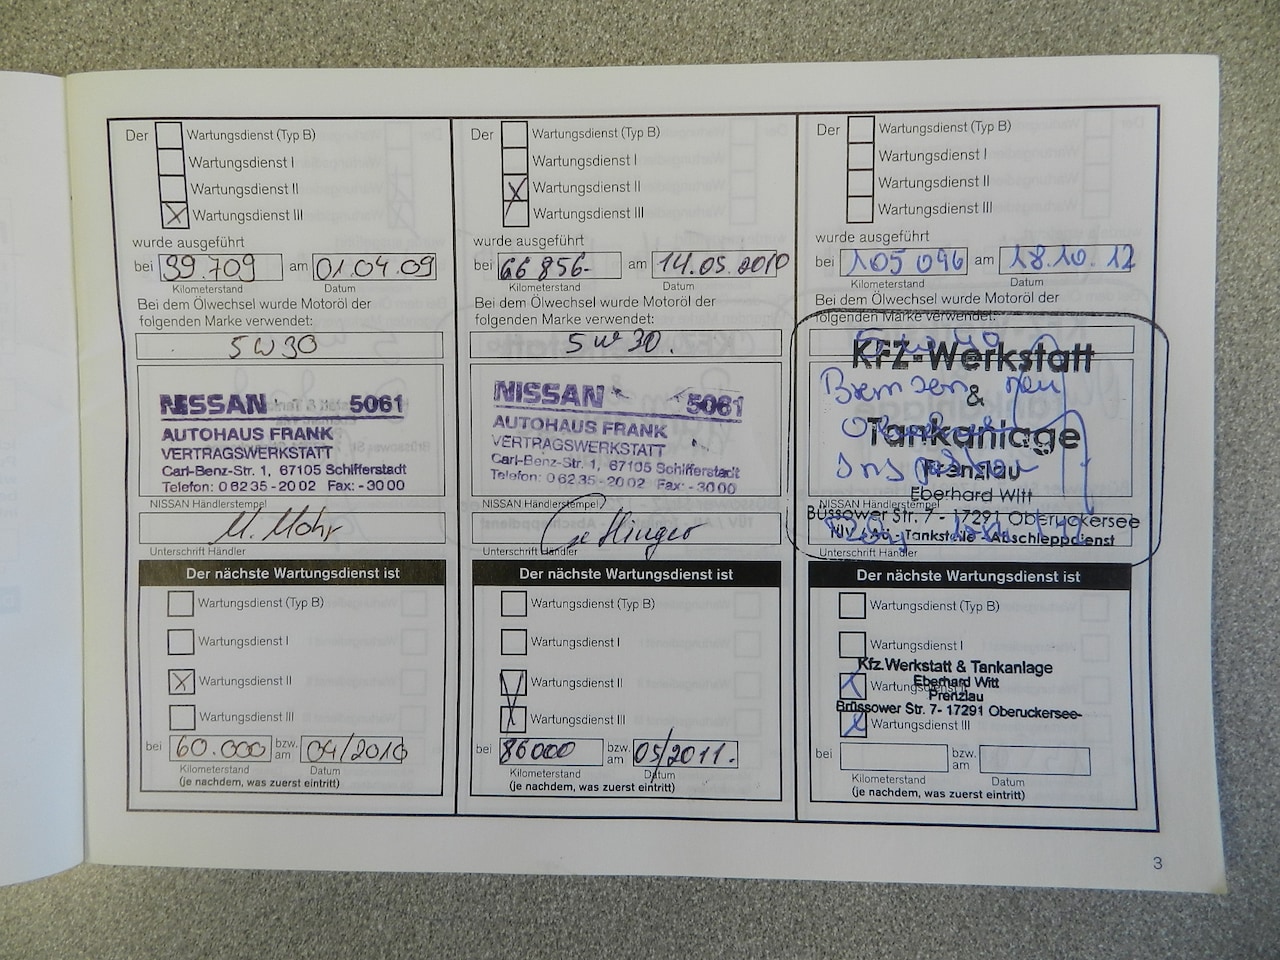 Der Wartungsdienst (Typ B)
Wartungsdienst I
Wartungsdienst II
Wartungsdienst III
wurde ausgeführt
bei 39.709 am 01.04.09
Kilometerstand Datum
Bei dem Ölwechsel wurde Motoröl der
folgenden Marke verwendet:
5W30
NISSAN 5061
AUTOHAUS FRANK
VERTRAGSWERKSTATT
Carl-Benz-Str. 1, 67105 Schifferstadt
Telefon: 06235-2002 Fax: -3000
NISSAN Händlerstempel
M. Mohr
Unterschrift Händler
Der nächste Wartungsdienst ist
Wartungsdienst (Typ B)
Wartungsdienst I
Wartungsdienst II
Wartungsdienst III
bei 60.000 bzw. am 04/2010
Kilometerstand Datum
(je nachdem, was zuerst eintritt)
Der Wartungsdienst (Typ B)
Wartungsdienst I
Wartungsdienst II
Wartungsdienst III
wurde ausgeführt
bei 66 856- am 14.05.2010
Kilometerstand Datum
Bei dem Ölwechsel wurde Motoröl der
folgenden Marke verwendet:
5W30.
NISSAN 5061
AUTOHAUS FRANK
VERTRAGSWERKSTATT
Carl-Benz-Str. 1, 67105 Schifferstadt
Telefon: 06235-2002 Fax: -3000
NISSAN Händlerstempel
Unterschrift Händler
Der nächste Wartungsdienst ist
Wartungsdienst (Typ B)
Wartungsdienst I
Wartungsdienst II
Wartungsdienst III
bei 86000 bzw. am 05/2011.
Kilometerstand Datum
(je nachdem, was zuerst eintritt)
Der Wartungsdienst (Typ B)
Wartungsdienst I
Wartungsdienst II
Wartungsdienst III
wurde ausgeführt
bei 105 096 am 18.10.12
Kilometerstand Datum
Bei dem Ölwechsel wurde Motoröl der
folgenden Marke verwendet:
KFZ-Werkstatt
Bremsen neu
&
Tankanlage
Prenzlau
Eberhard Witt
NISSAN Händlerstempel
Büssower Str. 7 - 17291 Oberuckersee
Tankstelle - Abschleppdienst
Unterschrift Händler
Der nächste Wartungsdienst ist
Wartungsdienst (Typ B)
Wartungsdienst I
Kfz.Werkstatt & Tankanlage
Eberhard Witt
Wartungsdienst II
Prenzlau
Brüssower Str. 7- 17291 Oberuckersee
Wartungsdienst III
bei bzw. am
Kilometerstand Datum
(je nachdem, was zuerst eintritt)
3